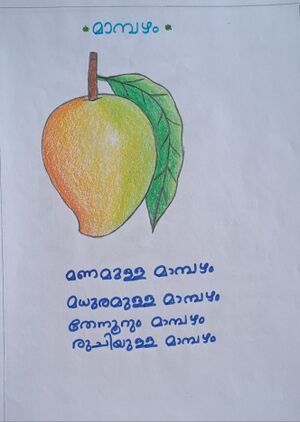 മാമ്പഴം
മണമുള്ള മാമ്പഴം
മധുരമുള്ള മാമ്പഴം
തേനൂറും മാമ്പഴം
രുചിയുള്ള മാമ്പഴം